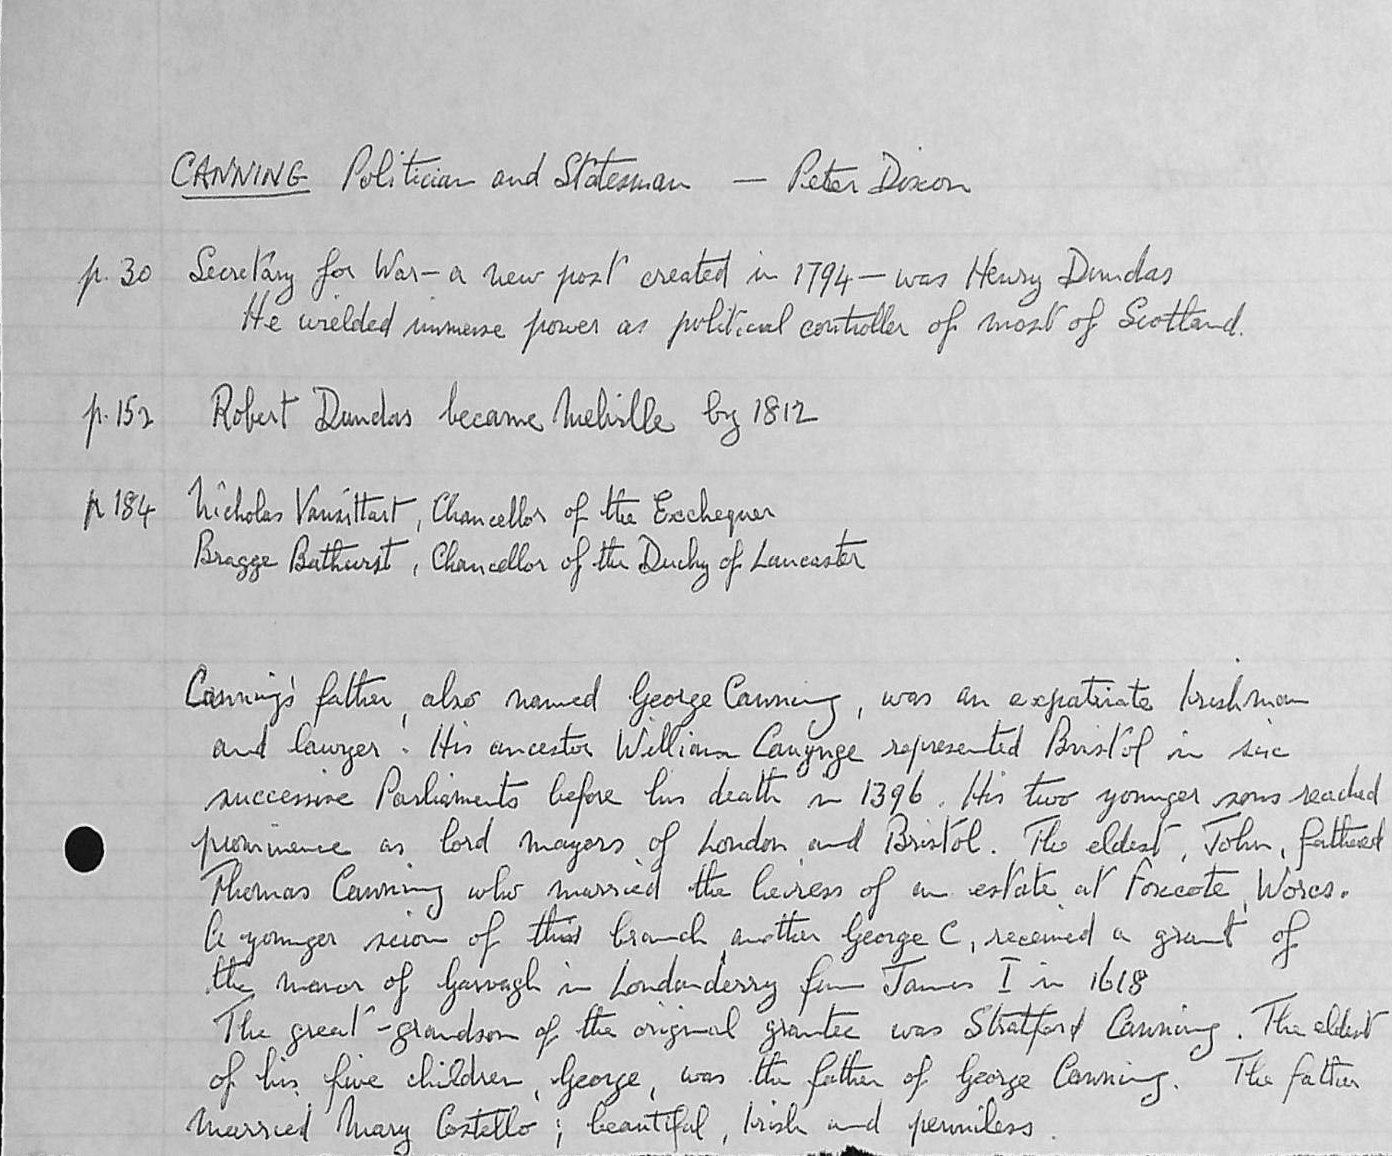 CANNING Politician and Statesman — Peter Dixon
p. 30 Secretary for War — a new post created in 1794 — was Henry Dundas
He wielded immense power as political controller of most of Scotland.
p. 152 Robert Dundas became Melville by 1812
p 184 Nicholas Vansittart, Chancellor of the Exchequer
Bragge Bathurst, Chancellor of the Duchy of Lancaster
Canning's father, also named George Canning, was an expatriate Irishman
and lawyer. His ancestor William Canynge represented Bristol in six
successive Parliaments before his death in 1396. His two younger sons reached
prominence as lord mayors of London and Bristol. The eldest, John, fathered
Thomas Canning who married the heiress of an estate at Foxcote, Worcs.
A younger scion of this branch, another George C, received a grant of
the manor of Garvagh in Londonderry from James I in 1618
The great-grandson of the original grantee was Stratford Canning. The eldest
of his five children, George, was the father of George Canning. The father
married Mary Costello; beautiful, Irish and penniless.